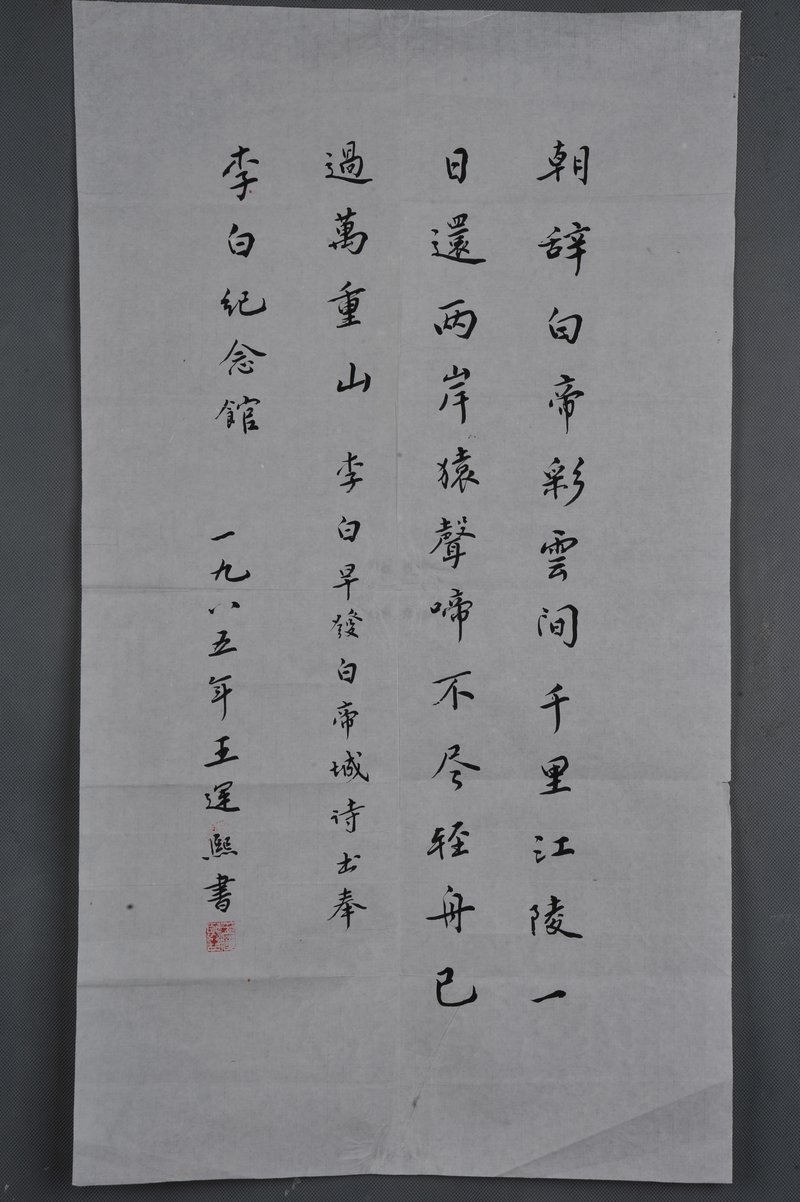 朝辞白帝彩雲间千里江陵一
日還两岸猿聲啼不尽轻舟已
過萬重山 李白早發白帝城诗书奉
李白纪念館
一九八五年王运熙書